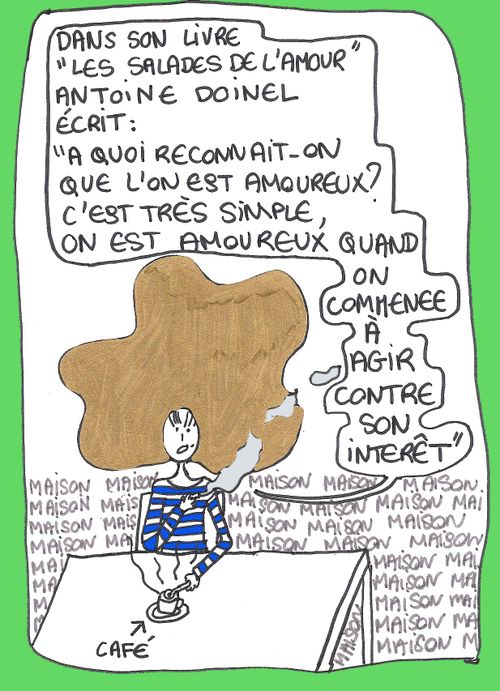 DANS SON LIVRE
"LES SALADES DE L'AMOUR"
ANTOINE DOINEL
ÉCRIT:
"A QUOI RECONNAIT-ON
QUE L'ON EST AMOUREUX?
C'EST TRÈS SIMPLE,
ON EST AMOUREUX QUAND
ON
COMMENEE
À
AGIR
CONTRE
SON
INTERÊT"
MAISON MAISON MAISON MAISON MAISON
MAISON MAIS MAISON MAISON MAISON MAI
MAISON MAIS MAISON MAISON MAISON
MAISON MAIS MAISON MAISON MAISON
MAISON MAISON MAI
MAISON MAI
MAISON MAI
MAISON MAI
MAISON M
MAISON
CAFÉ